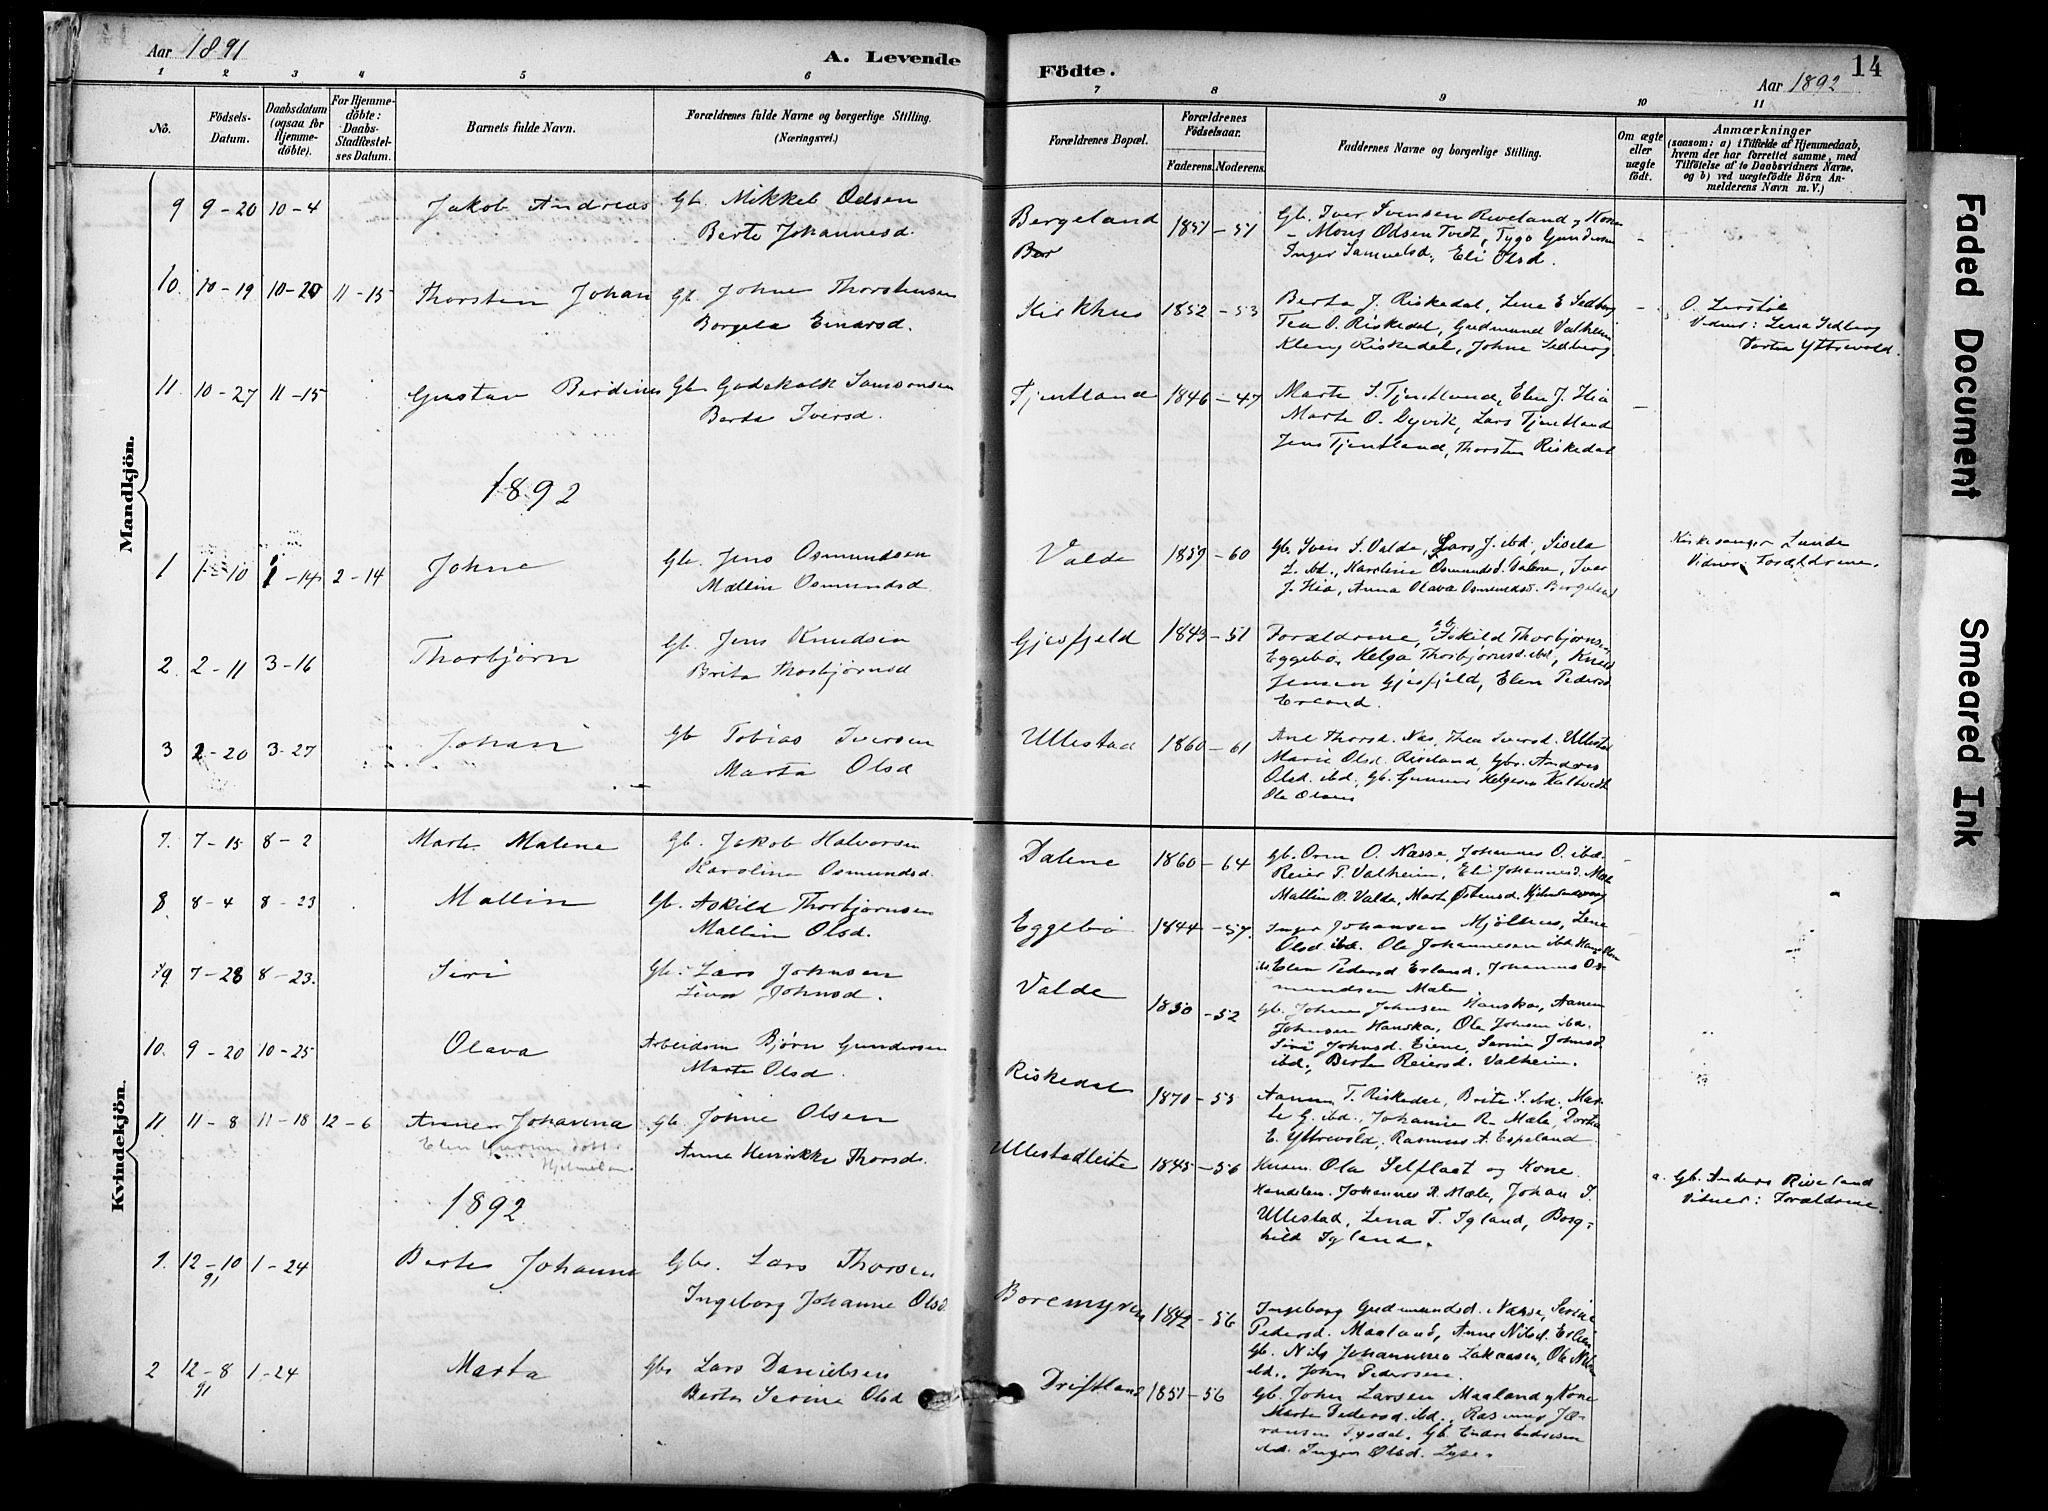 Aar 1891
A. Levende
Födte.
Aar 1892
14
1 2 3 4 5 6 7 8 9 10 11
No.
Födsels-Datum.
Daabsdatum (ogsaa for Hjemme-döbte).
For Hjemme-döbte: Daabs-Stadfæstel-ses Datum.
Barnets fulde Navn.
Forældrenes fulde Navne og borgerlige Stilling.
(Næringsvei.)
Forældrenes Bopæl.
Forældrenes Födselsaar.
Faderens. Moderens.
Faddernes Navne og borgerlige Stilling.
Om ægte eller uægte födt.
Anmærkninger
(saasom: a) i Tilfælde af Hjemmedaab,
hvem der har forrettet samme, med
Tilföielse af to Daabsvidners Navne,
og b) ved uægtefödte Börn An-
melderens Navn m. V.)
Mandkjön.
9 9-20 10-4 Jakob Andreas Gb. Mikkel Odsen
Berte Johannesd.
Bergeland 1851-51 Gb. Iver Svensen Riveland og Kone
- Mons Odsen Tvedt, Tygo Gundersen
Inger Samuelsd, Eli Olsd.
10. 10-19 10-20 11-15 Thorstein Johan Gb. Johne Thorstensen
Borgela Einarsd.
Kirkhus 1852-53 Berta J. Riskedal, Lene E Sedberg
Tea O. Riskedal, Gudmund Valheim
Kleng Riskedal, Johne Sedberg
Vidner: Lena Sedberg
Dortea Yttrevold.
11. 10-27 11-15 Gustav Berdines Gb. Godskalk Samsonsen
Berta Iversd.
Tjentland 1846-47 Marte S. Tjentland, Elen J. Hia
Marte O. Dyvik, Lars Tjentland
Jens Tjentland, Thorsten Riskedal
1892
1 1-10 1-14 2-14 Johne Gb. Jens Osmundsen
Mallin Osmundsd.
Valde 1859-60 Gb. Sven S. Valde, Lars J. ibd, Sisela
L. ibd, Karoline Osmundsd. Valene, Iver
J. Hia, Anna Olava Osmundsd. Bergeland
Kirkesanger Lunde
Vidner: Forældrene.
2. 2-11 3-16 Thorbjørn Gb. Jens Knudsen
Brita Thorbjørnsd
Gjesfjeld 1843-51 Forældrene, Gb. Askild Thorbjørns.
Eggebø, Helga Thorbjørnsd. ibd, Knud
Jensen Gjesfjeld, Elen Pedersd
Erland.
3 2-20 3-27 Johan Gb Tobias Iversen
Marta Olsd
Ullestad 1860-61 Ane Thorsd. Nas, Thea Iversd. Ullestad
Marie Olsd. Riveland, Gbr. Anders
Olsd. ibd, Gb. Gunnar Helgesen Kaltvedt
Ole Olsen
Kvindekjön.
7. 7-15 8-2 Marte Malene Gb. Jakob Halvorsen
Karoline Osmundsd.
Dalene 1860-64 Gb. Orm O. Næsse, Johannes O. ibd.
Reier P. Valheim, Eli Johannesd. Mæle
Mallin O. Valde, Marte Østensd.
8 8-4 8-23 Mallin Gb. Askild Thorbjørnsen
Mallin Olsd.
Eggebø 1844-57. Inger Johansen Mjølhus, Lene
Olsd ibd. Ole Johannesen ibd
Elen Pedersd Erland. Johannes Os-
mundsen Mæle
9 7-28 8-23. Siri Gb. Lars Johnsen
Johnsd.
Valde 1850-52 Gb. Johnsen Hauskor, Aanen
Johnsen Hauska, Ole Johnsen ibd.
Siri Johnsd. Eiene, Serine Johnsd.
ibd., Berte Reiersd. Valheim.
10. 9-20 10-25 Olava Arbeidsm Bjørn Gundersen
Marte Olsd.
Riskedal 1870-55 Aanen T. Riskedal, Brite S. ibd, Mar-
te G. ibd, Johanne R. Mæle, Dortea
E. Yttrevold, Rasmus A. Espeland
11. 11-8 11-18 12-6 Anne Johanna Gb. Johne Olsen
Anne Henrikke Thorsd.
Ullestadleite 1845-56 Husm. Ola Selflaat og Kone
Handelsm. Johannes R. Mæle, Johan S.
Ullestad, Lena T. Tyland, Borg-
hild Tyland.
a. Gb. Anders Riveland
Vidner: Forældrene.
1892
1. 12-10 91 1-24 Berte Johanne Gbr. Lars Thorsen
Ingeborg Johanne Olsd
Boremyren 1842-56 Ingeborg Gudmundsd. Næsse, Serine
Pedersd. Maaland, Anne Nilsd.
Gb. Nils Johannesen
ibd., John Pedersen.
2 12-8 91 1-24 Marta Gbr Lars Danielsen
Berte Serine Olsd
Driftland 1851-56 Gb. John Larsen Maaland og Kone
Marte Pedersd ibd., Rasmus Jø-
ransen Tysdal. Gb. Endre Endresen
ibd. Inger Olsd. Lyse.
Faded Document
Smeared Ink